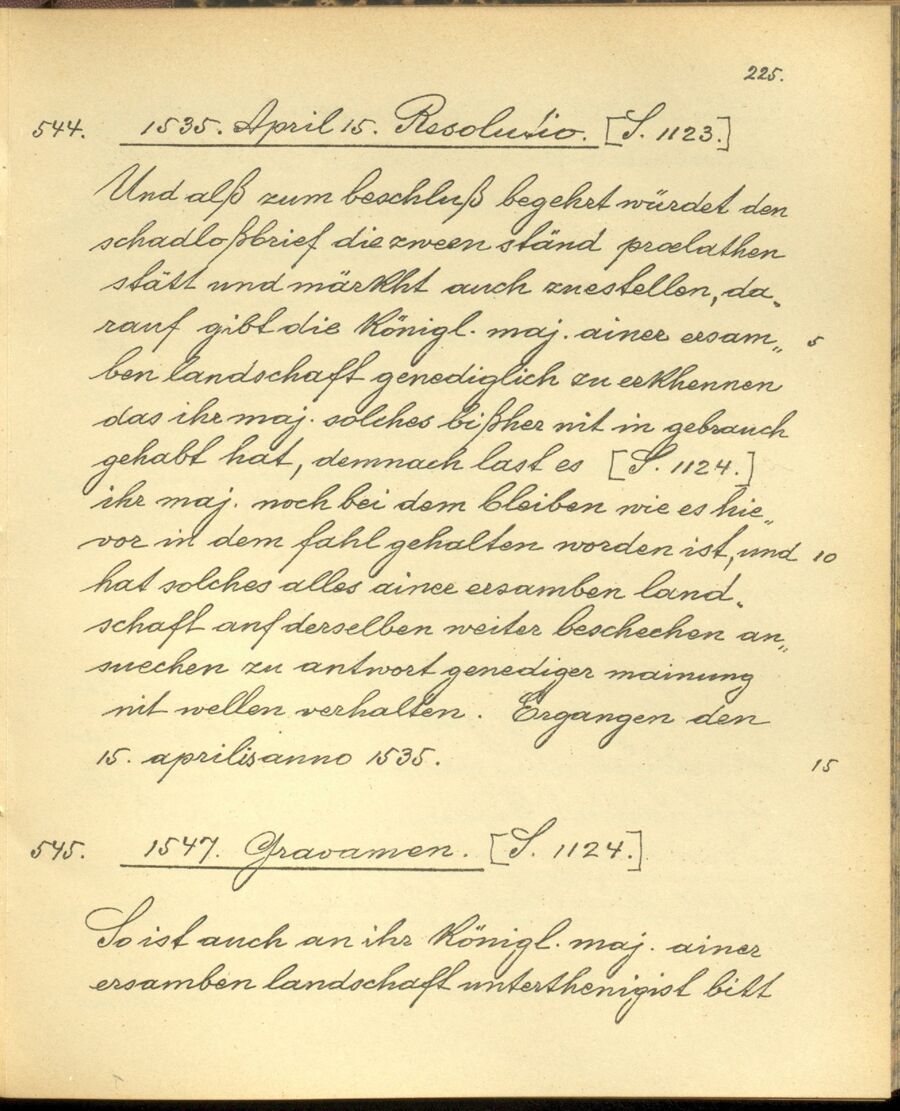 225.
544. 1535. April 15. Resolutio. [S. 1123.]
Und alß zum beschluß begehrt würdet den
schadloßbrief die zween ständ prælathen
stätt und märkht auch zuestellen, da„
rauf gibt die königl. maj. ainer ersam„ 5
ben landschaft genediglich zu erkhennen
das ihr maj. solches bißher nit in gebrauch
gehabt hat, demnach last es [S. 1124.]
ihr maj. noch bei dem bleiben wie es hie„
vor in dem fahl gehalten worden ist, und 10
hat solches alles ainer ersamben land„
schaft auf derselben weiter beschechen an„
suechen zu antwort genediger mainung
nit wellen verhalten. Ergangen den
15. aprilis anno 1535. 15
545. 1547. Gravamen. [S. 1124.]
So ist auch an ihr königl. maj. ainer
ersamben landschaft unterthenigist bitt